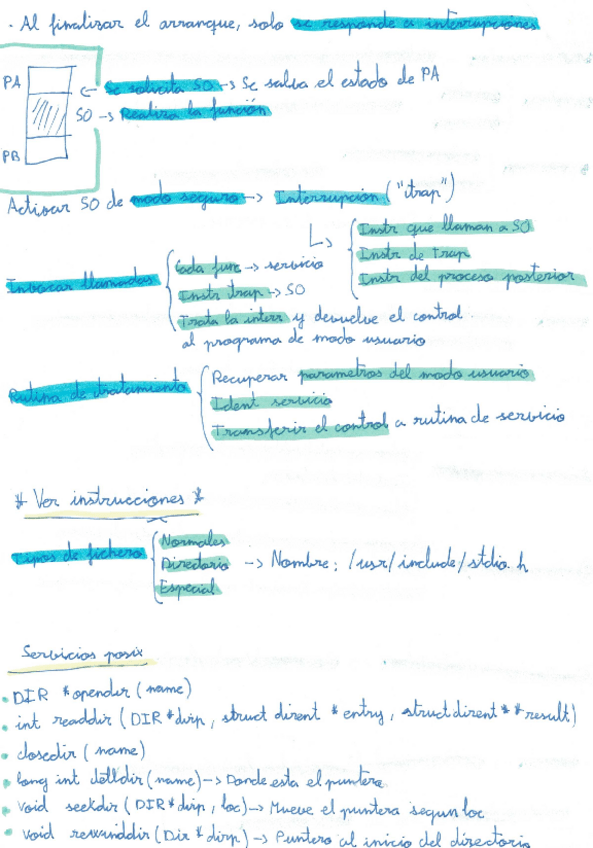 · Al finalizar el arranque, solo se responde a interrupciones
PA
← Se solicita SO → Se salva el estado de PA
SO → Realiza la función
PB
Activar SO de modo seguro → Interrupción ("trap")
Instr que llaman a SO
Instr de trap
Instr del proceso posterior
Invocar llamadas
Cada func → servicio
Instr trap → SO
Trata la interr y devuelve el control
al programa de modo usuario
Rutina de tratamiento
Recuperar parametros del modo usuario
Ident servicio
Transferir el control a rutina de servicio
* Ver instrucciones *
Tipos de fichero
Normales
Directorio → Nombre: /usr/include/stdio.h
Especial
Servicios posix
• DIR *opendir (name)
• int readdir (DIR *dirp, struct dirent *entry, struct dirent **result)
• closedir (name)
• long int telldir (name) → Donde esta el puntero
• void seekdir (DIR *dirp, loc) → Mueve el puntero segun loc
• void rewinddir (Dir *dirp) → Puntero al inicio del directorio